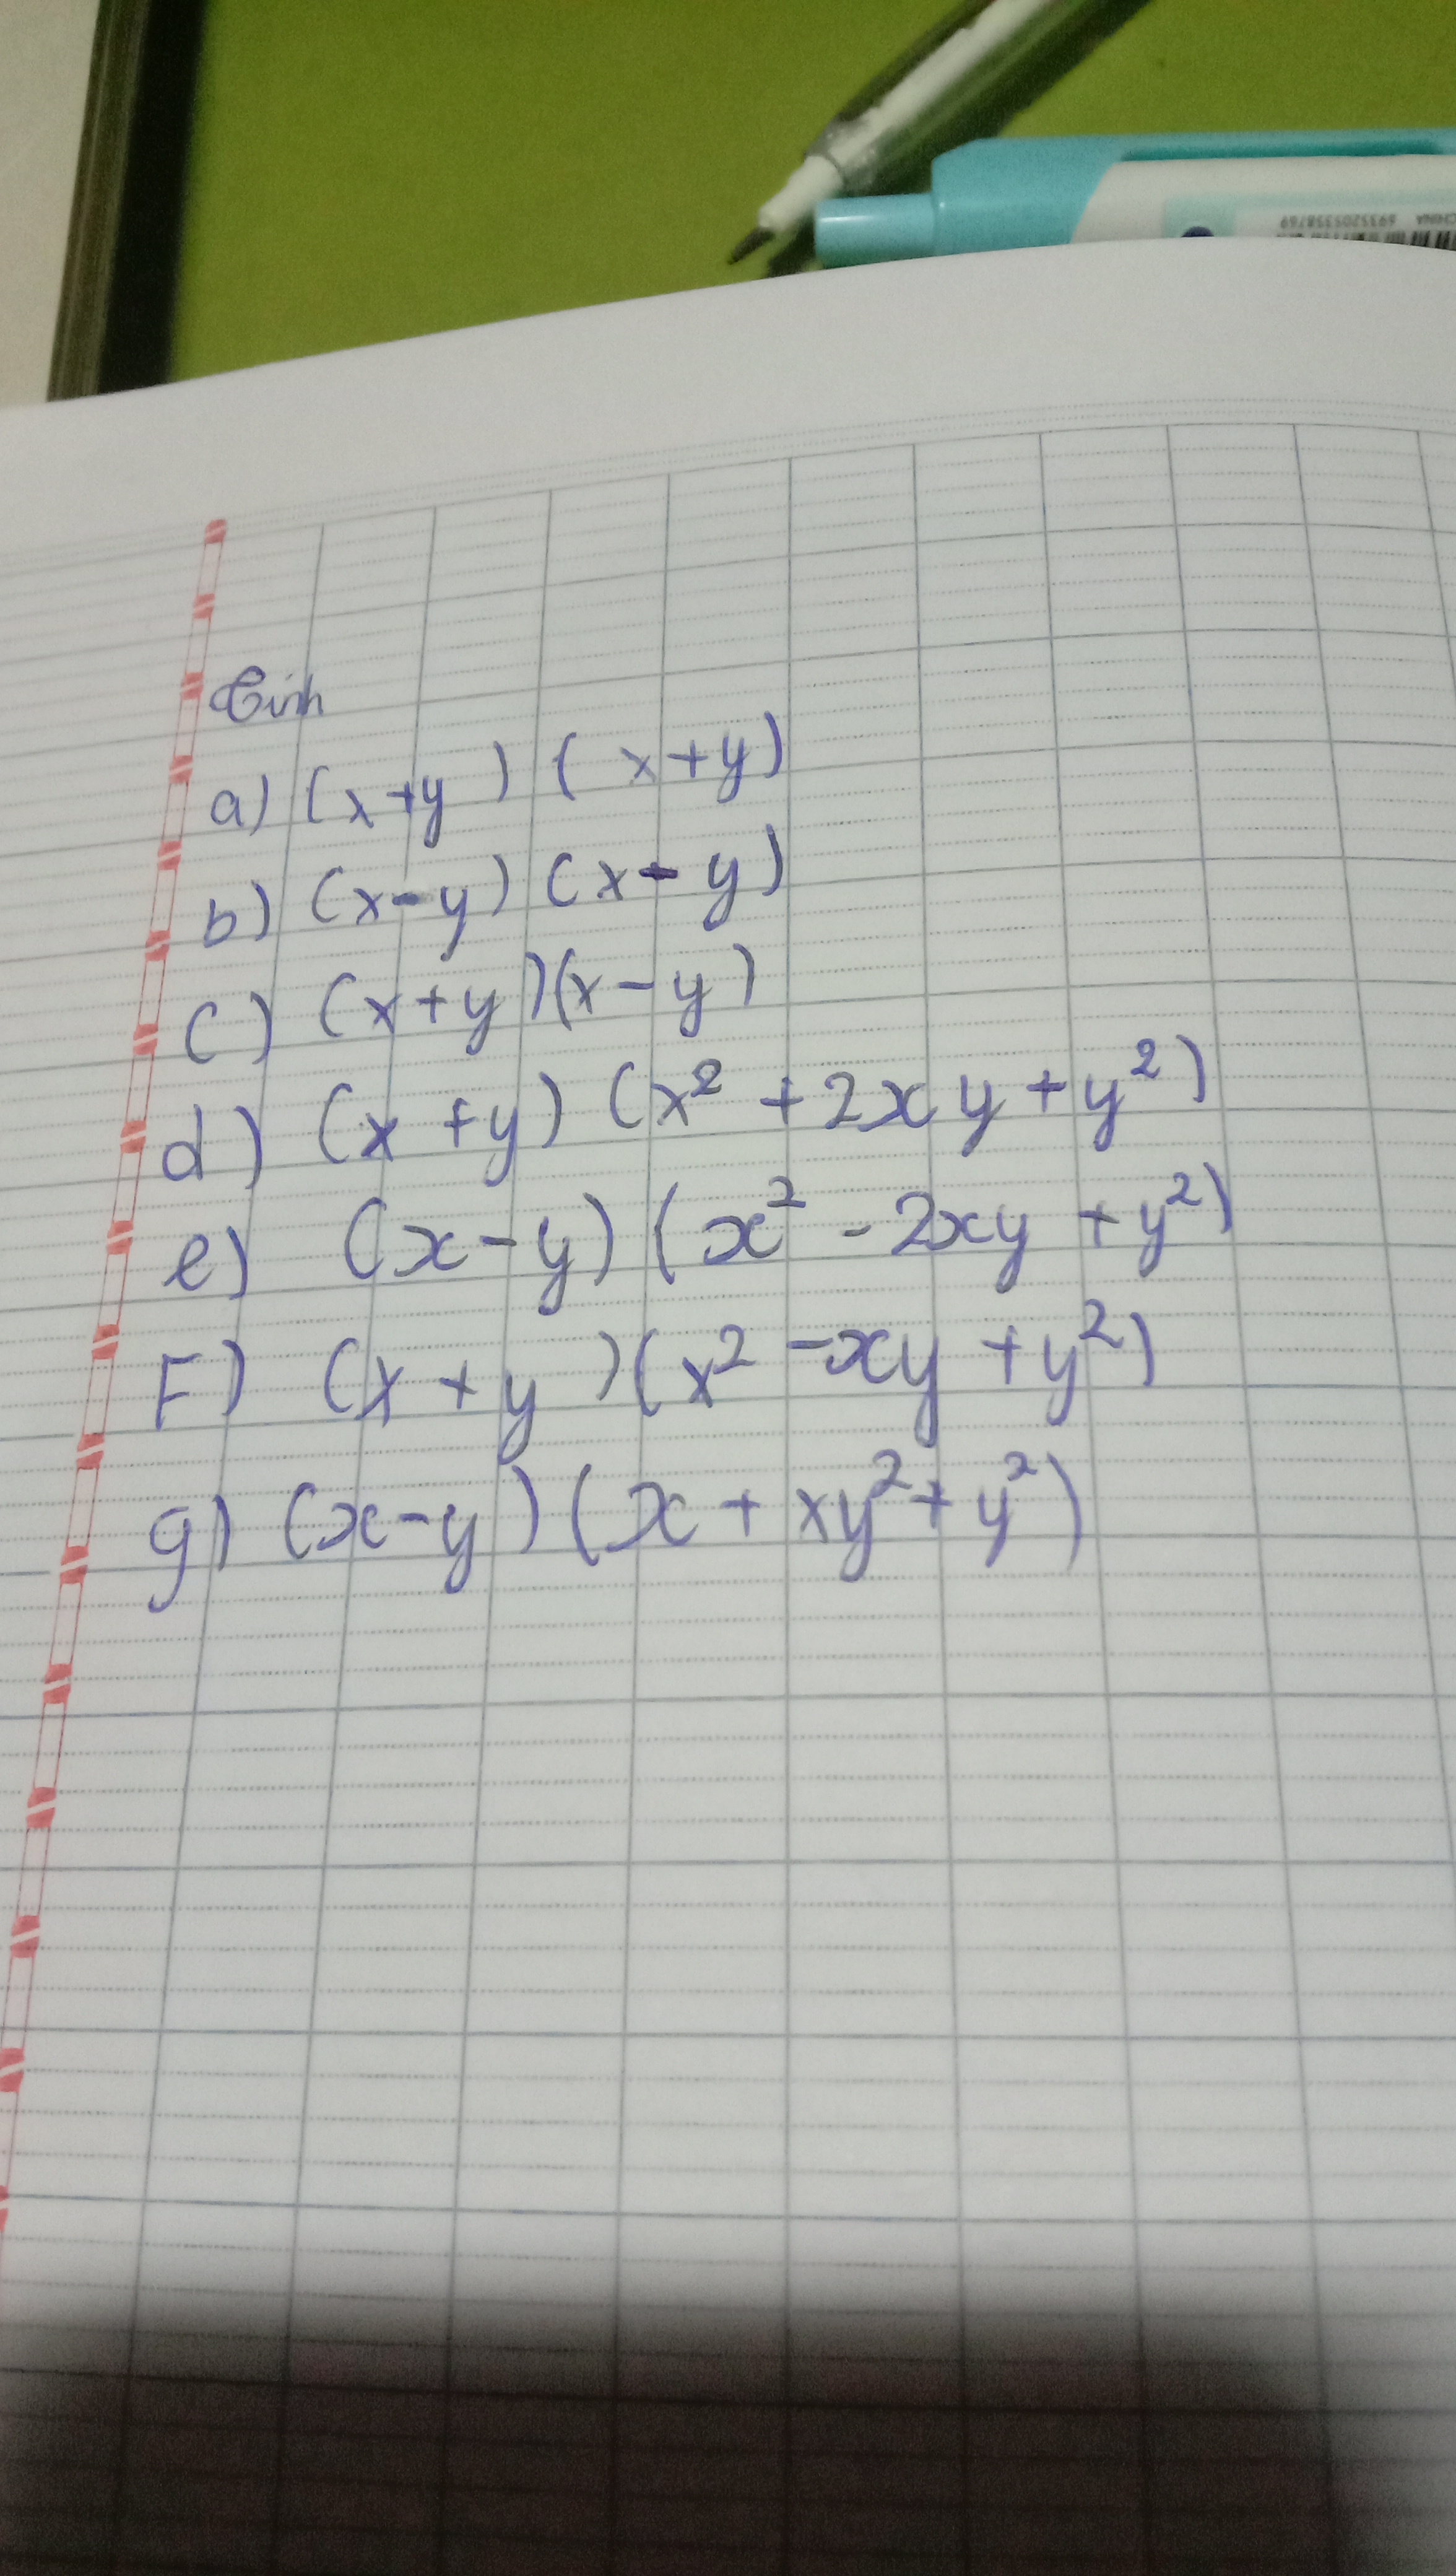 Tính
a) (x+y) (x+y)
b) (x-y) (x-y)
c) (x+y)(x-y)
d) (x+y) (x² + 2xy + y²)
e) (x-y) (x² - 2xy + y²)
F) (x+y)(x² - xy + y²)
g) (x-y) (x + xy² + y²)